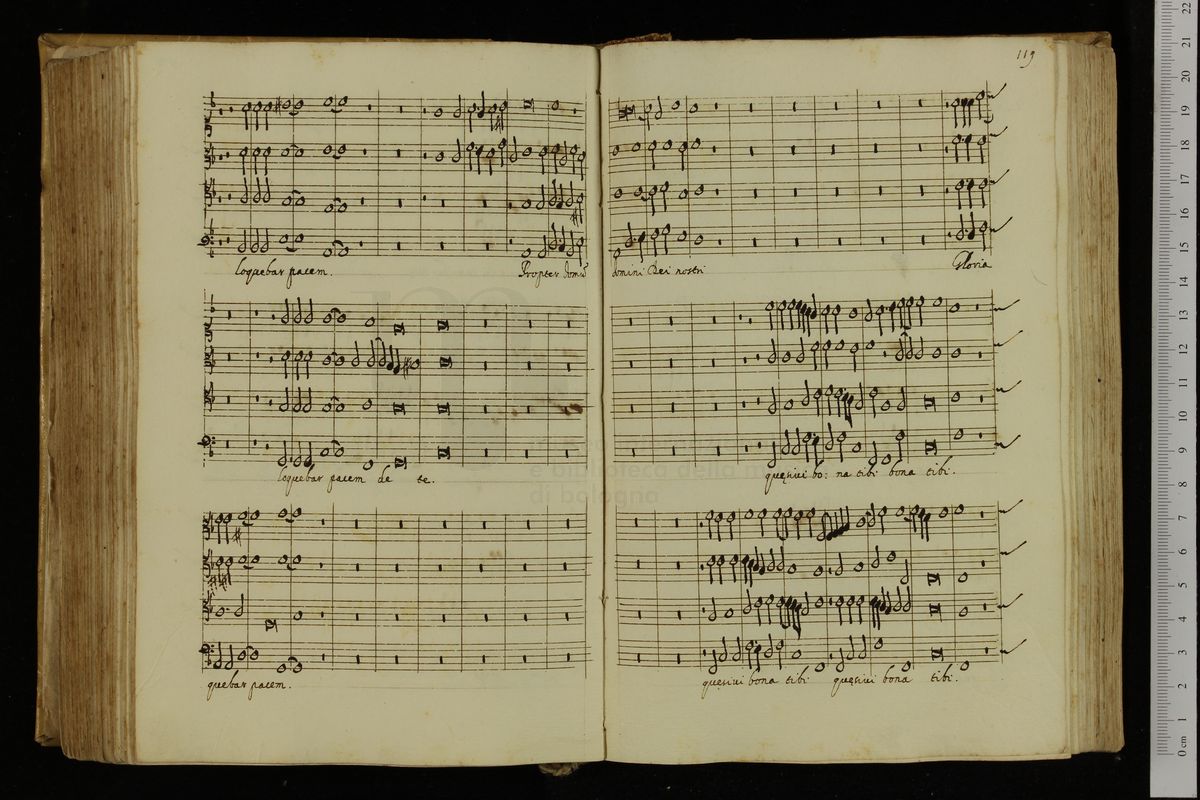 119
loquebar pacem.
Propter domũ
domini Dei nostri
Gloria
loquebar pacem de te.
quęsiui bo: na tibi bona tibi.
quebar pacem.
quęsiui bona tibi quęsiui bona tibi.
e biblioteca della m
di bologna
0 cm 1 2 3 4 5 6 7 8 9 10 11 12 13 14 15 16 17 18 19 20 21 22